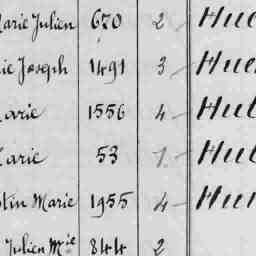 Marie Julien 670 2 Hu
ie Joseph 1491 3 Hu
Marie 1556 4 Hu
Marie 53 1 Hu
tin Marie 1955 4 Hu
Julien Mie 844 2